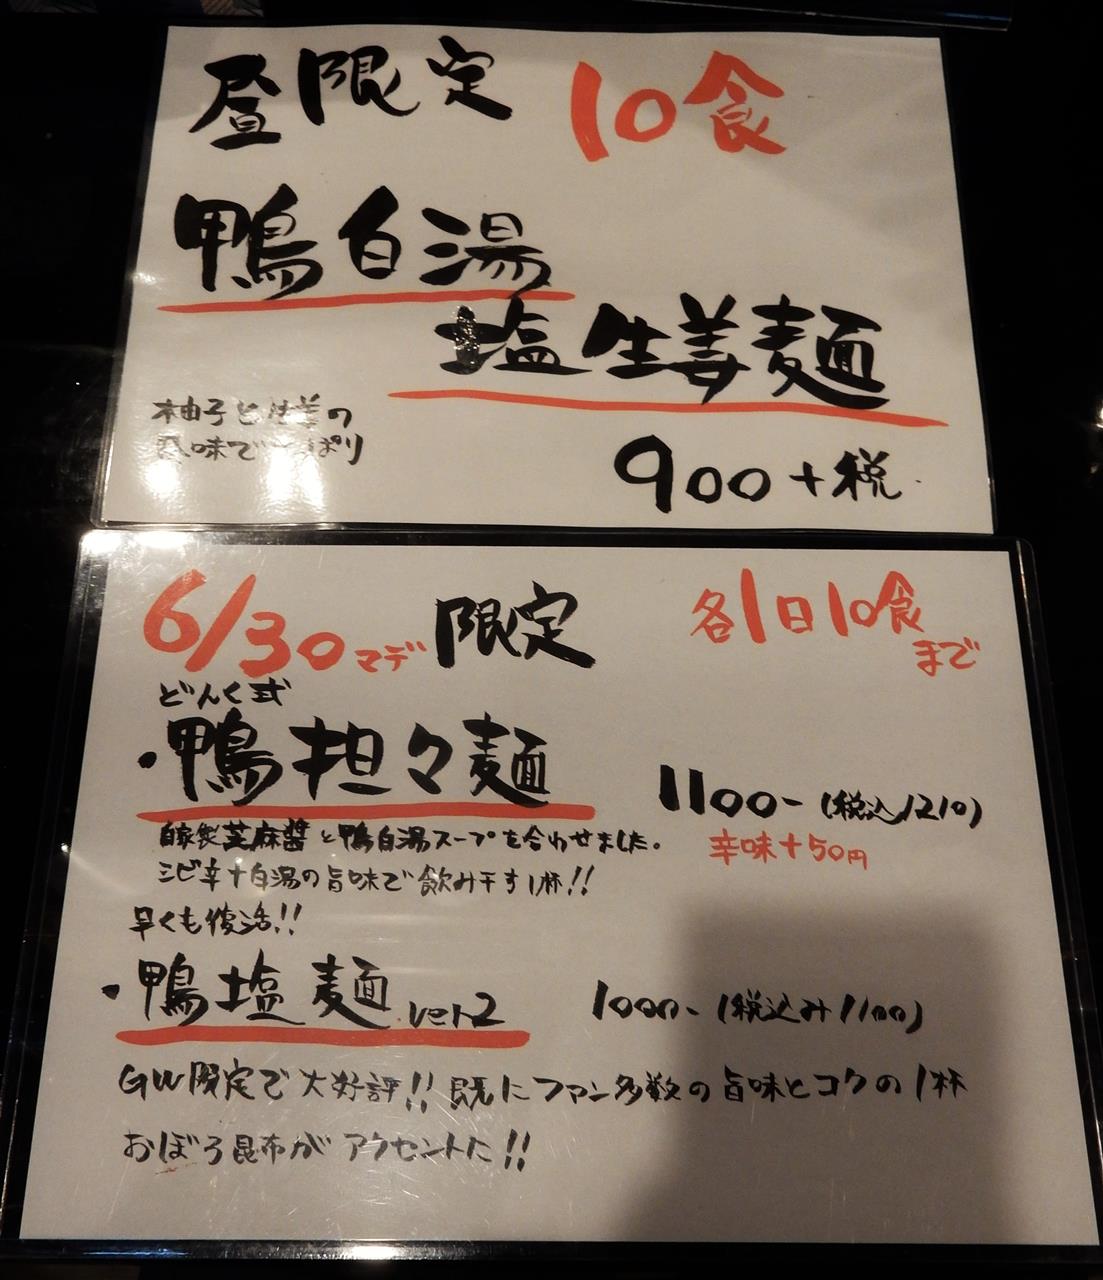 昼限定 10食
鴨白湯
塩生姜麺
柚子と生姜の
風味でさっぱり
900+税
6/30マデ 限定 各1日10食まで
どんく式
・鴨担々麺 1100-(税込1210)
辛味+50円
自家製芝麻醤と鴨白湯スープを合わせました。
シビ辛+白湯の旨味で飲み干す1杯!!
早くも復活!!
・鴨塩麺 ver2 1000-(税込み1100)
GW限定で大好評!!既にファン多数の旨味とコクの1杯
おぼろ昆布がアクセントに!!